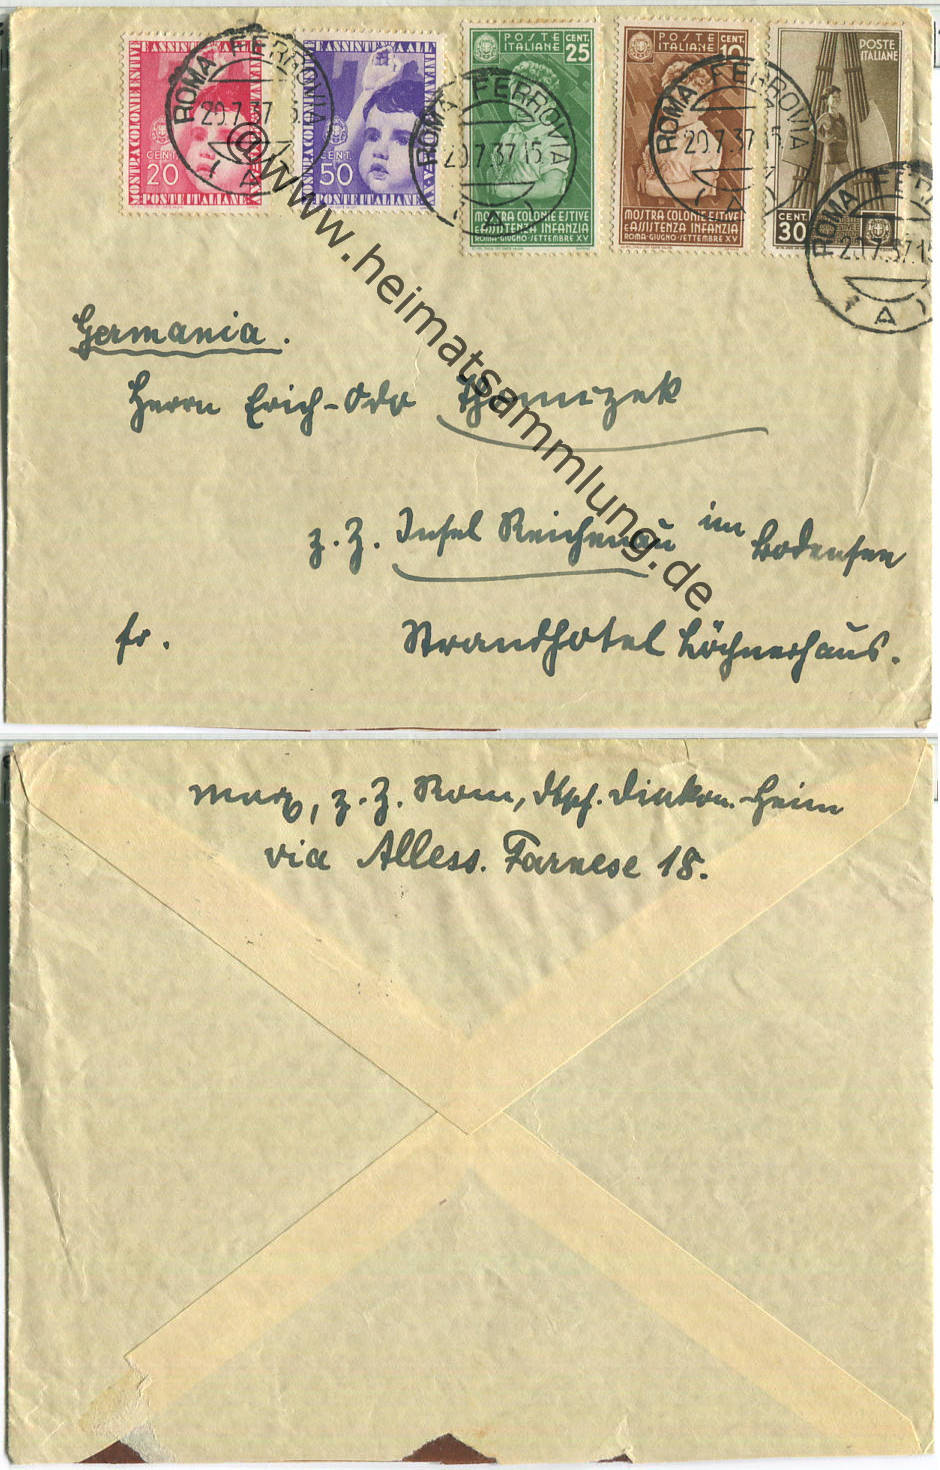 MOSTRA COLONIE ESTIVE E ASSISTENZA ALL'INFANZIA
CENT.
20
POSTE ITALIANE
MOSTRA COLONIE ESTIVE E ASSISTENZA ALL'INFANZIA
CENT.
50
POSTE ITALIANE
POSTE ITALIANE
CENT. 25
MOSTRA COLONIE ESTIVE
E ASSISTENZA INFANZIA
ROMA·GIUGNO·SETTEMBRE XV
POSTE ITALIANE
CENT. 10
MOSTRA COLONIE ESTIVE
E ASSISTENZA INFANZIA
ROMA·GIUGNO·SETTEMBRE XV
POSTE ITALIANE
CENT. 30
ROMA FERROVIA
20.7.37.15
A
ROMA FERROVIA
20.7.37.15
A
ROMA FERROVIA
20.7.37.15
A
ROMA FERROVIA
20.7.37.15
A
@www.heimatsammlung.de
Germania.
Herrn Erich-Odo
z. Z. Insel Reichenau im Bodensee
fr.
Strandhotel Löchnerhaus.
z. Z. Rom, dtsch. Diakon.-Heim
via Alless. Farnese 18.